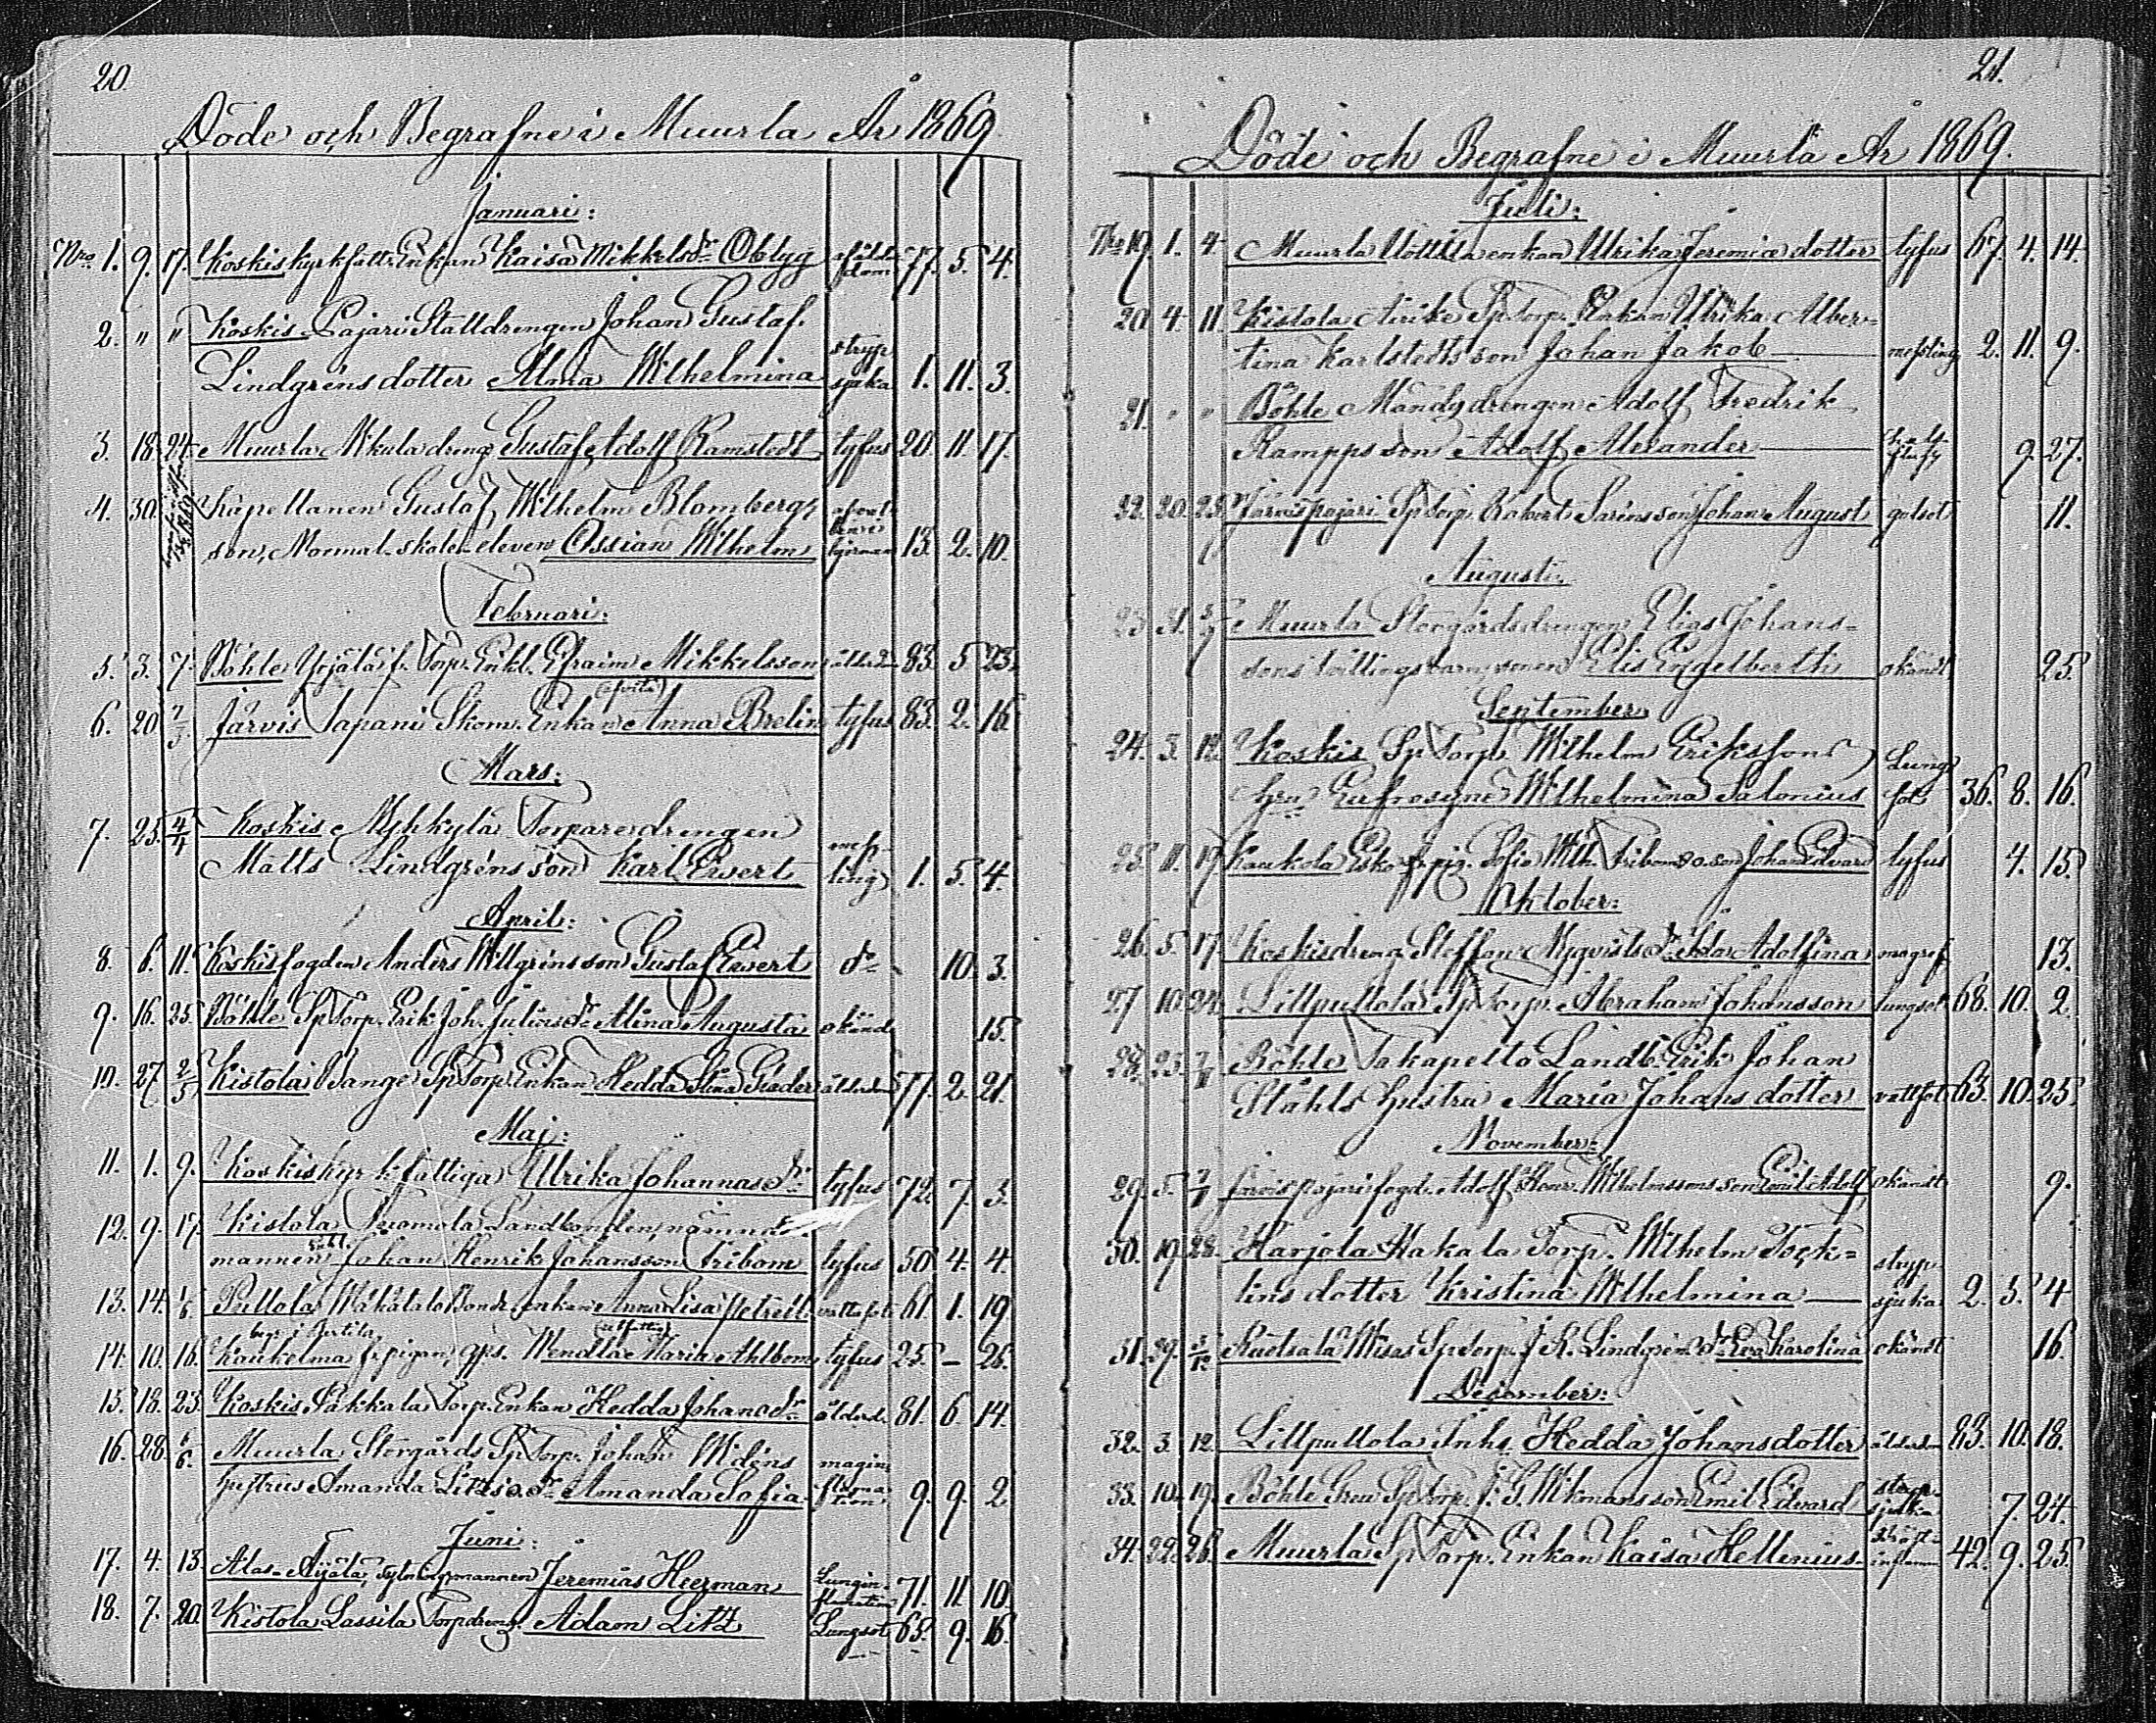 20.
Döde och Begrafne i Muurla År 1869.
Januari:
Nro 1. 9. 17. Koskis kyrkfatt. Enkan Kaisa Mikkelsdr Oblyg 77. 5. 4.
2. " " Koskis Pajari Stalldrengen Johan Gustaf
Lindgréns dotter Alma Wilhelmina stryp sjuka 1. 11. 3.
3. 18. 24. Muurla Nikula dreng Gustaf Adolf Ramstedt tyfus 20. 11. 17.
4. 30. Kapellanen Gustaf Wilhelm Blombergs
son, Normal-skole-eleven Ossian Wilhelm 13. 2. 10.
Februari:
5. 3. 7. Böhle Yrjälä f. Torp. Enkl. Efraim Mikkelsson 83. 5. 23.
6. 20. 7/3. Järvis Tapani Skom. Enkan Anna Brelin tyfus 83. 2. 16.
Mars:
7. 25. 4/4 Koskis Nyhkylä Torparedrengen
Matts Lindgréns son Karl Evert mess-ling 1. 5. 4.
April:
8. 6. 11. Koskis fogden Anders Willgréns son Gustaf Evert do 10. 3.
9. 16. 25. Böhle Sp Torp. Erik Joh. Julins dr Alina Augusta okänd 15.
10. 27. 2/5. Kistola Bange Sp Torp. Enkan Hedda Stina 77. 2. 21.
Maj:
11. 1. 9. Koskis kyrkfattiga Ulrika Johannas dr tyfus 72. 7. 3.
12. 9. 17. Kistola Landbonden, nämnde-
mannen Johan Henrik Johansson Fribom tyfus 50. 4. 4.
13. 14. 1/6. Pullola Bonde enkan Anna Lisa 61. 1. 19.
begr. i Bertila
14. 10. 16. Kaukelma f. pigan, Wendla Maria Ahlbom tyfus 25. – 26.
15. 18. 23. Koskis Pakkala Torp. Enkan Hedda Johansdr ålderd. 81. 6. 14.
16. 28. 6/6. Muurla Storgårds Sp Torp. Johan Widéns
hustrus Amanda dr Amanda Sofia magin flamation 9. 9. 2.
Juni:
17. 4. 13. Alas-Äijälä, Jeremias Heerman Lungin-flamation 71. 11. 10.
18. 7. 20. Kistola Lassila Torpdreng. Adam Litz Lungsot 65. 9. 16.
21.
Döde och Begrafne i Muurla År 1869.
Juli:
Nro 19. 1. 4. Muurla Uotila enkan Ulrika Jeremiæ dotter tyfus 67. 4. 14.
20. 4. 11. Kistola Sp Torp. Enkan Ulrika Alber-
tina Karlstedts son Johan Jakob messling 2. 11. 9.
21. " " Böhle Mändy drengen Adolf Fredrik
Rampps son Adolf Alexander 9. 27.
22. 20. 25. Järvis pajari Sp Torp. Robert Saréns son Johan August gulsot 11.
Augusti:
23. 31. Muurla Storgårdsdrengen Elias Johans-
sons tvillingsbarn, sonen Elis Engelberth okändt 25.
September
24. 3. 12. Koskis Sp Torp. Wilhelm Erikssons
Hru Eufrosyne Wilhelmina Salonius Lung sot 36. 8. 16.
25. 11. 19. Kaukola Esko f. pig. Sofia Wilh. Friboms o. son Johan Edvard tyfus 4. 15.
Oktober:
26. 5. 17. Koskis dreng Steffan Nyqvists dr Ida Adolfina 13.
27. 10. 24. Lillpullola Sp Torp. Abraham Johansson lungsot 68. 10. 2.
28. 23. Böhle Takapelto Landb. Erik Johan
Ståhls hustru Maria Johansdotter vattsot 63. 10. 25.
November:
29. 5. Järvis pajari fogd. Adolf Henr. Wilhelmssons son Emil Adolf okändt 9.
30. 19. 28. Harjola Hakala Torp. Wilhelm Tock-
lins dotter Kristina Wilhelmina stryp-sjuka 2. 5. 4
31. 29. 5/12. Ruotsala Wisas Sp Torp. J. R. Lindgréns dr Eva Karolina okändt 16.
December:
32. 3. 12. Lillpullola Inhs. Hedda Johansdotter ålderdom 83. 10. 18.
33. 10. 19. Böhle Sp Torp. J. G. Wikmans son Emil Edvard stryp-sjuka 7. 24.
34. 22. 26. Muurla Sp Torp. Enkan Kaisa Hellenius 42. 9. 25.